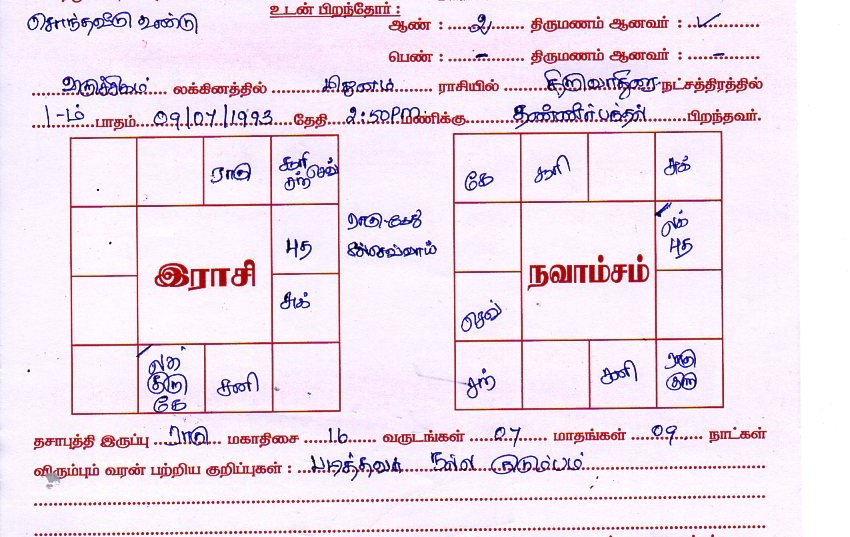 உடன் பிறந்தோர் :
சொந்தவீடு உண்டு
ஆண் : 2 திருமணம் ஆனவர் : ✓
பெண் : - திருமணம் ஆனவர் : -
விருச்சிகம் லக்கினத்தில் மிதுனம் ராசியில் திருவாதிரை நட்சத்திரத்தில்
1-ம் பாதம் 09/07/1993 தேதி 2:50PM மணிக்கு தண்ணீர்பந்தல் பிறந்தவர்.
ராகு சூரி செவ் சந்
புத
சுக்
லக் குரு கே
சனி
இராசி
ராகு-கேது
செவ்வாய்
கே சூரி சுக்
லக் புத
செவ்
சந் சனி ராகு குரு
நவாம்சம்
தசாபுத்தி இருப்பு ராகு மகாதிசை 16 வருடங்கள் 07 மாதங்கள் 09 நாட்கள்
விரும்பும் வரன் பற்றிய குறிப்புகள் : படித்தவர் நல்ல குடும்பம்